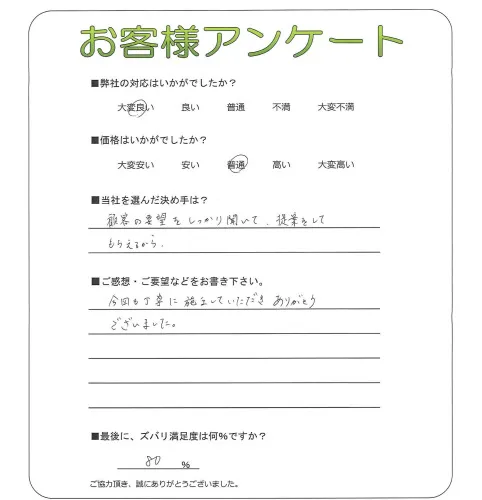 お客様アンケート
■弊社の対応はいかがでしたか？
大変良い 良い 普通 不満 大変不満
■価格はいかがでしたか？
大変安い 安い 普通 高い 大変高い
■当社を選んだ決め手は？
顧客の要望をしっかり聞いて、提案をして
もらえるから。
■ご感想・ご要望などをお書き下さい。
今回も丁寧に施工していただきありがとう
ございました。
■最後に、ズバリ満足度は何％ですか？
80 ％
ご協力頂き、誠にありがとうございました。